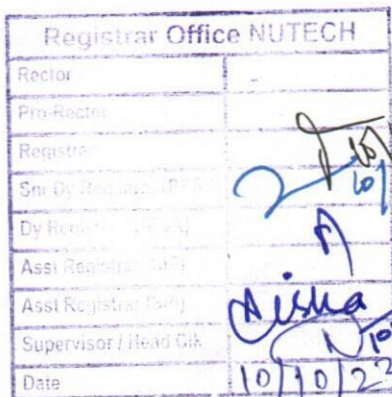 Registrar Office NUTECH
Rector -
Pro-Rector
Registrar 10
Snr Dy Registrar 10
Dy Registrar
Asst Registrar
Asst Registrar Aisha
Supervisor / Head Clk 10
Date 10/10/22